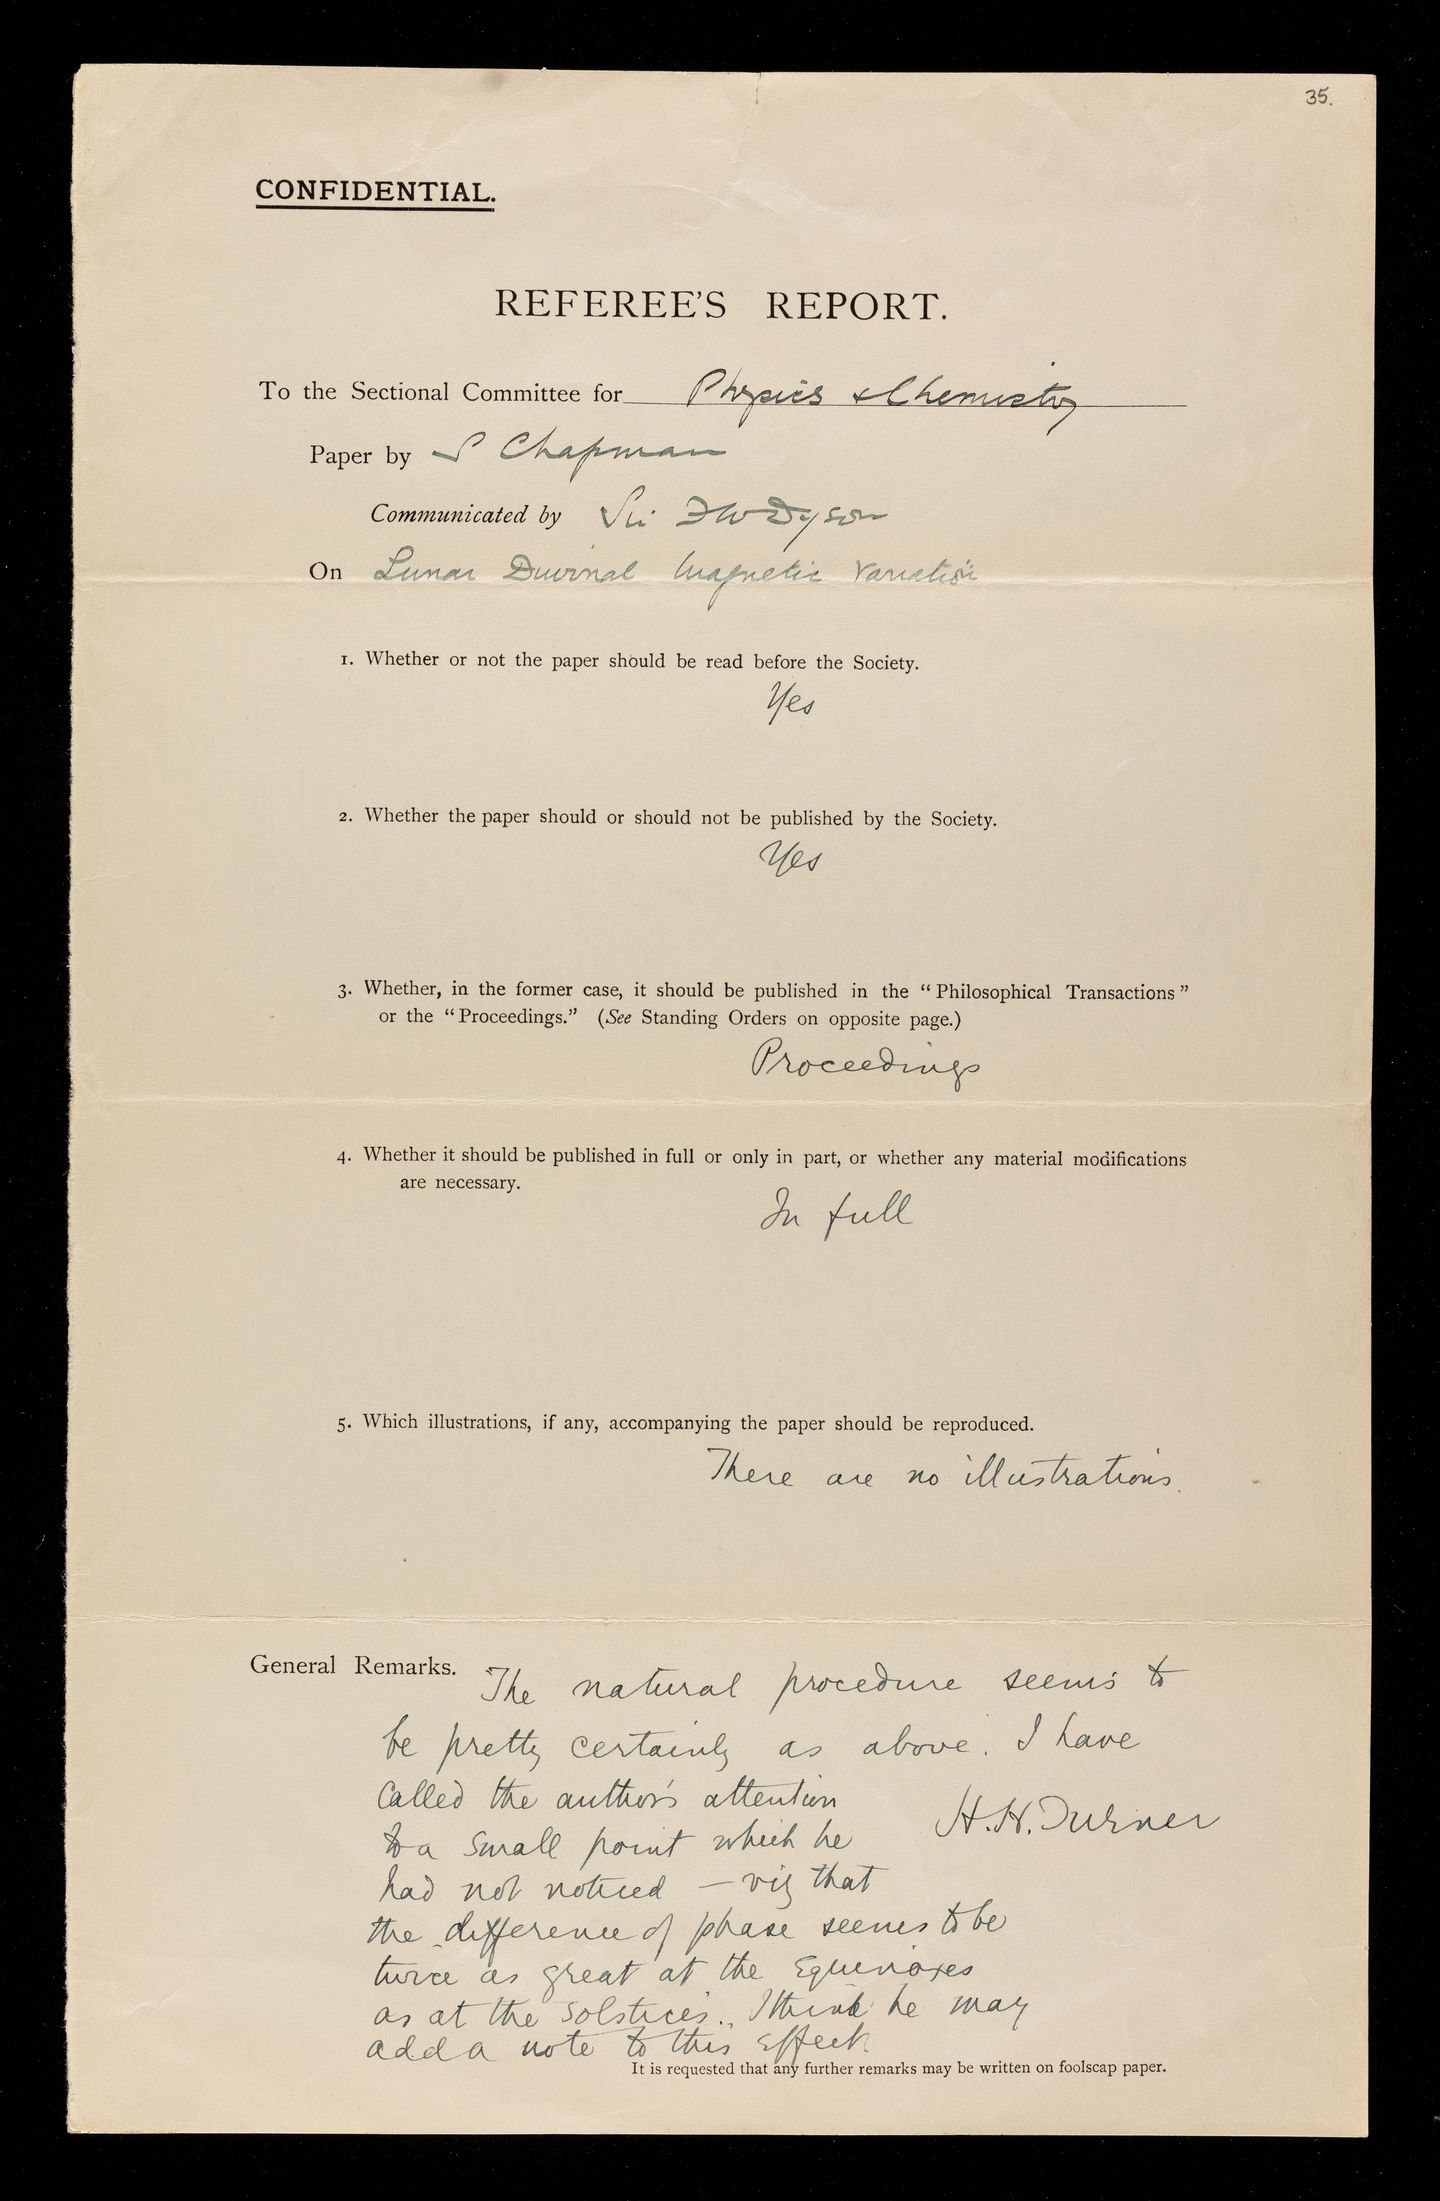 35.
CONFIDENTIAL.
REFEREE'S REPORT.
To the Sectional Committee for Physics & Chemistry
Paper by S Chapman
Communicated by Sir F W Dyson
On Lunar Diurnal Magnetic Variation
1. Whether or not the paper should be read before the Society.
Yes
2. Whether the paper should or should not be published by the Society.
Yes
3. Whether, in the former case, it should be published in the "Philosophical Transactions"
or the "Proceedings." (See Standing Orders on opposite page.)
Proceedings
4. Whether it should be published in full or only in part, or whether any material modifications
are necessary.
In full
5. Which illustrations, if any, accompanying the paper should be reproduced.
There are no illustrations.
General Remarks. The natural procedure seems to
be pretty certainly as above. I have
called the author's attention
to a small point which he
had not noticed — viz that
the difference of phase seems to be
twice as great at the Equinoxes
as at the Solstices. I think he may
add a note to this effect
H. H. Turner
It is requested that any further remarks may be written on foolscap paper.